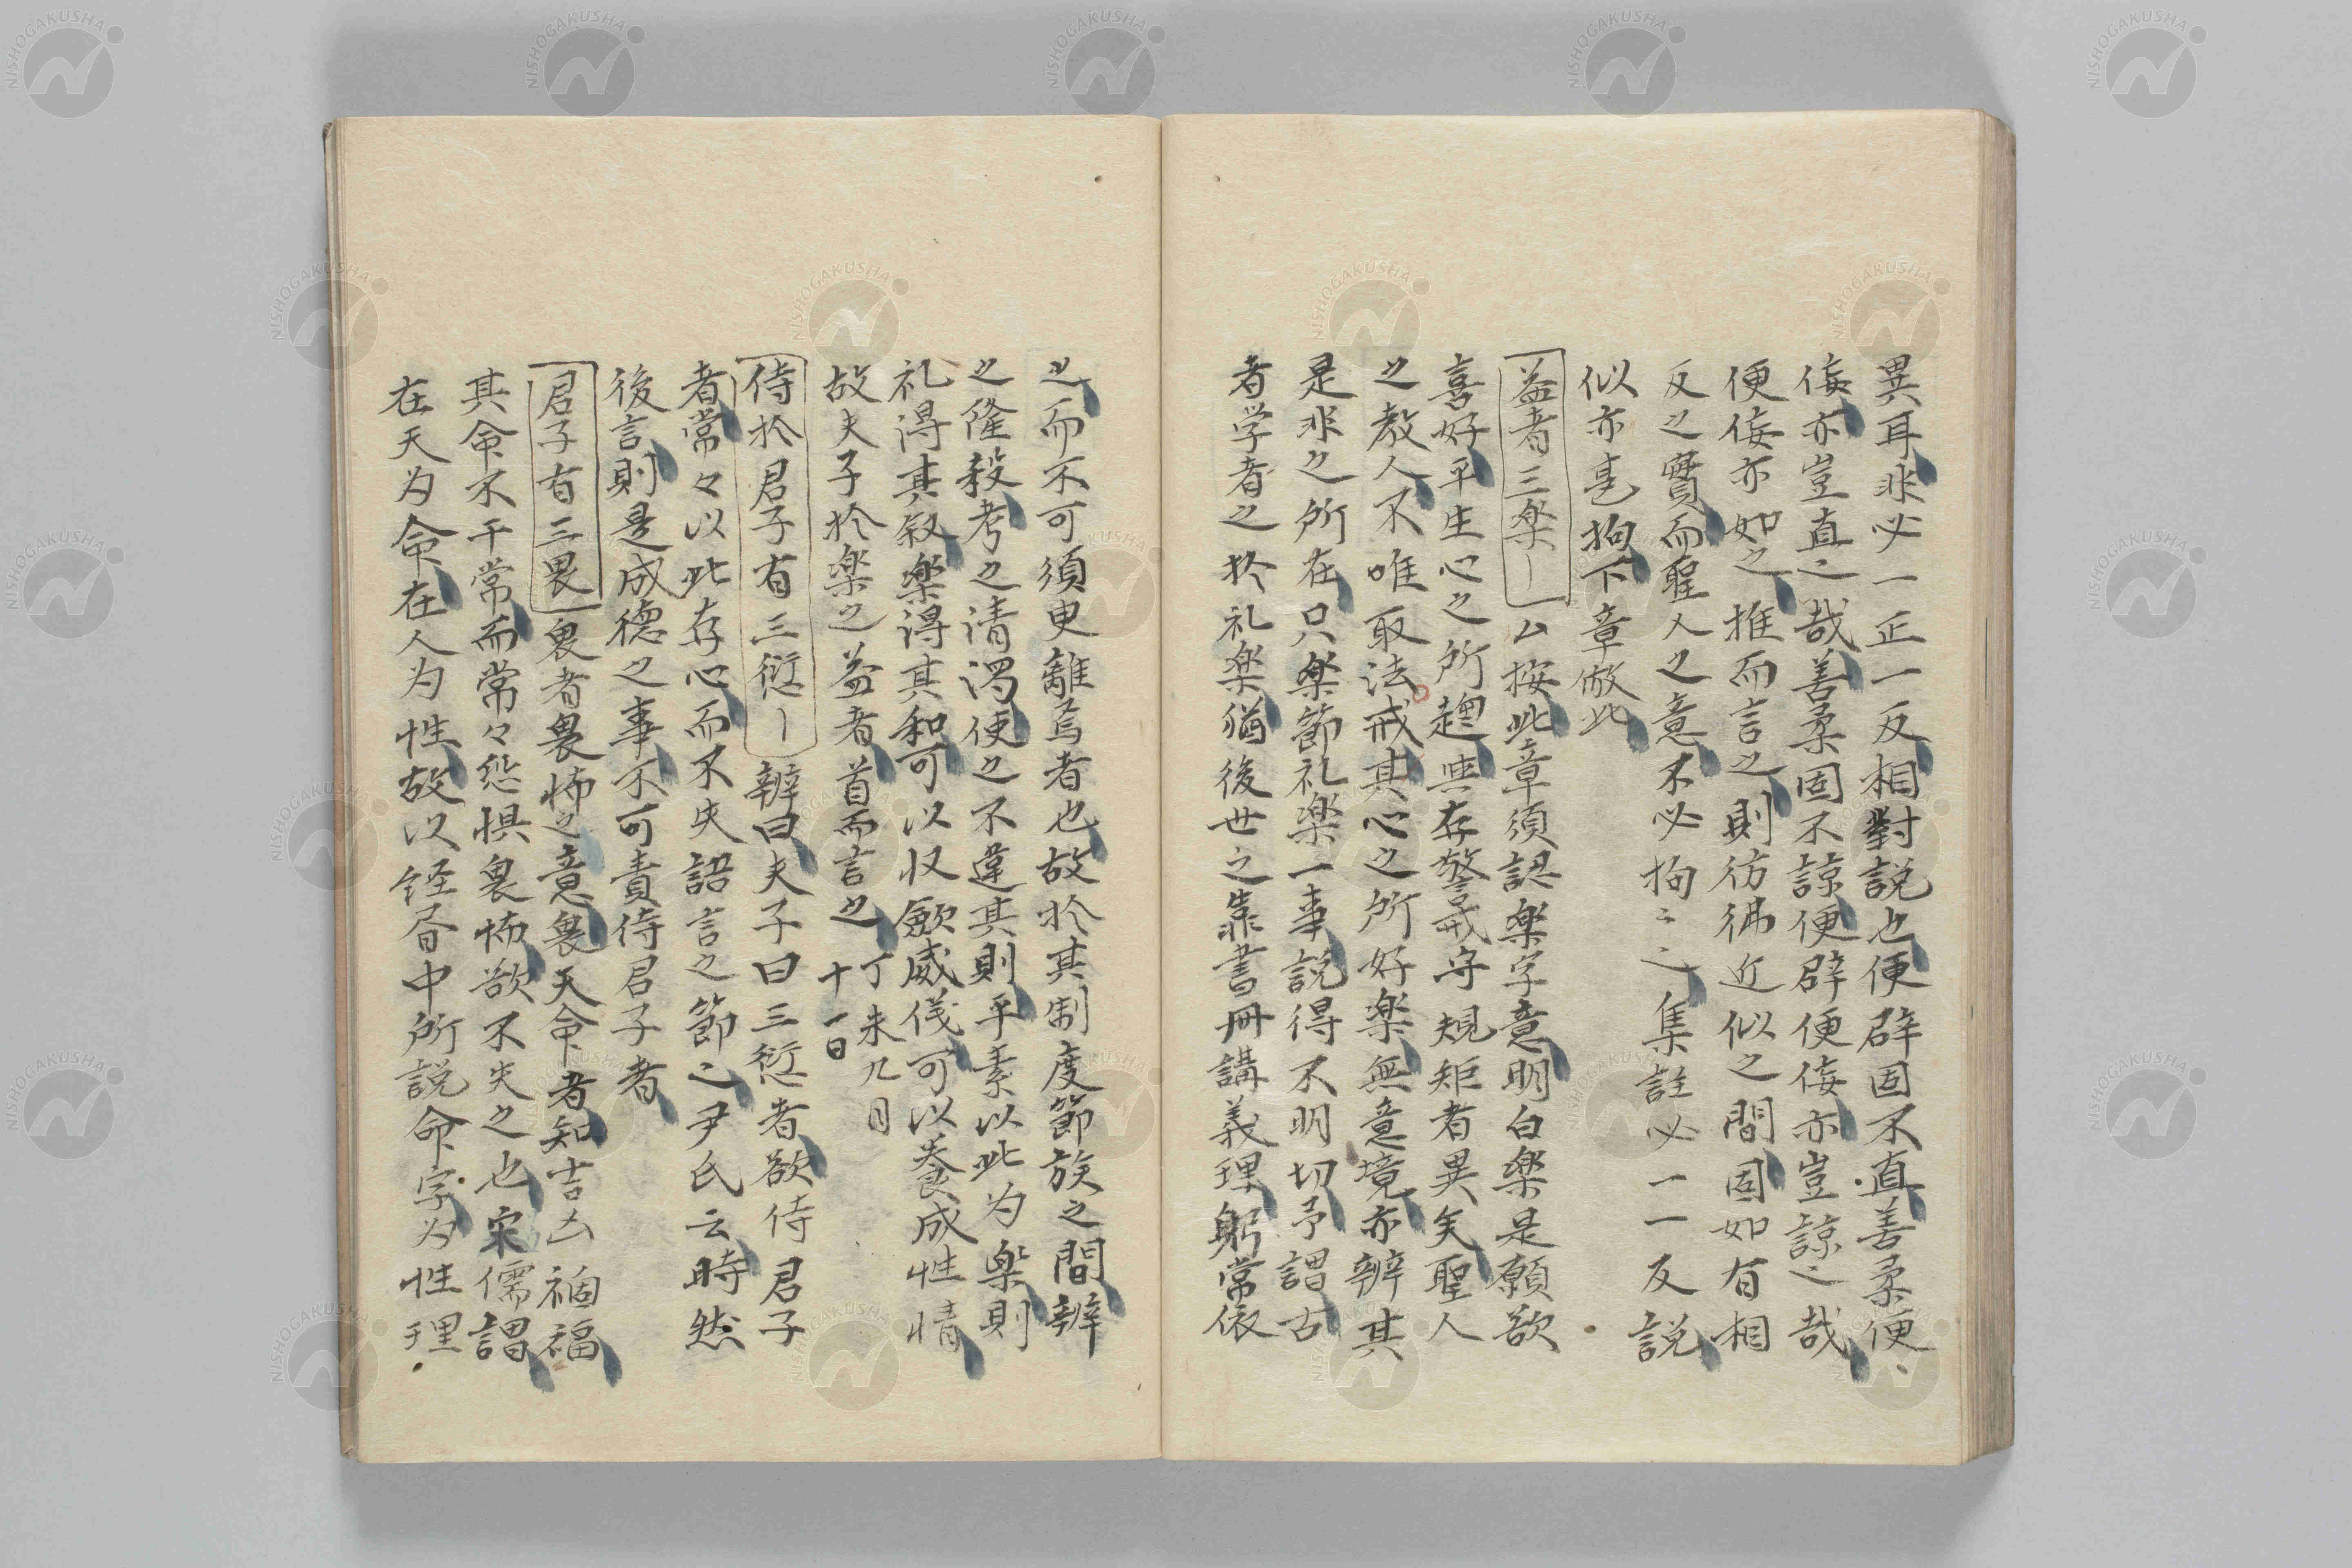 異耳非必一正一反相對説也便辟固不直善柔便
侫亦豈直之哉善柔固不諒便辟便侫亦豈諒之哉
便侫亦如之推而言之則彷彿近似之間固如有相
反之實而聖人之意不必拘〻之集註必一一反説
似亦甚拘下章倣此
益者三楽〡ム按此章須認楽字意明白楽是願欲
喜好平生心之所趣其存警戒守規矩者異矣聖人
之教人不唯取法戒其心之所好楽無意境亦辨其
是非之所在只楽節礼楽一事説得不明切予謂古
者学者之於礼楽猶後世之靠書冊講義理躬常依
之而不可須臾離焉者也故於其制度節族之間辨
之隆殺考之清濁便之不違其則平素以此为楽則
礼得其敍楽得其和可以収斂威儀可以養成性情
故夫子於楽之益者首而言之 丁未九月
十一日
侍於君子有三愆〡辨曰夫子曰三愆者欲侍君子
者常々以此存心而不失語言之節之尹氏云時然
後言則是成德之事不可責侍君子者
君子有三畏畏者畏怖之意畏天命者知吉凶禍福
其命不干常而常々恐惧畏怖欲不失之也宋儒謂
在天为命在人为性故以経書中所説命字为性理